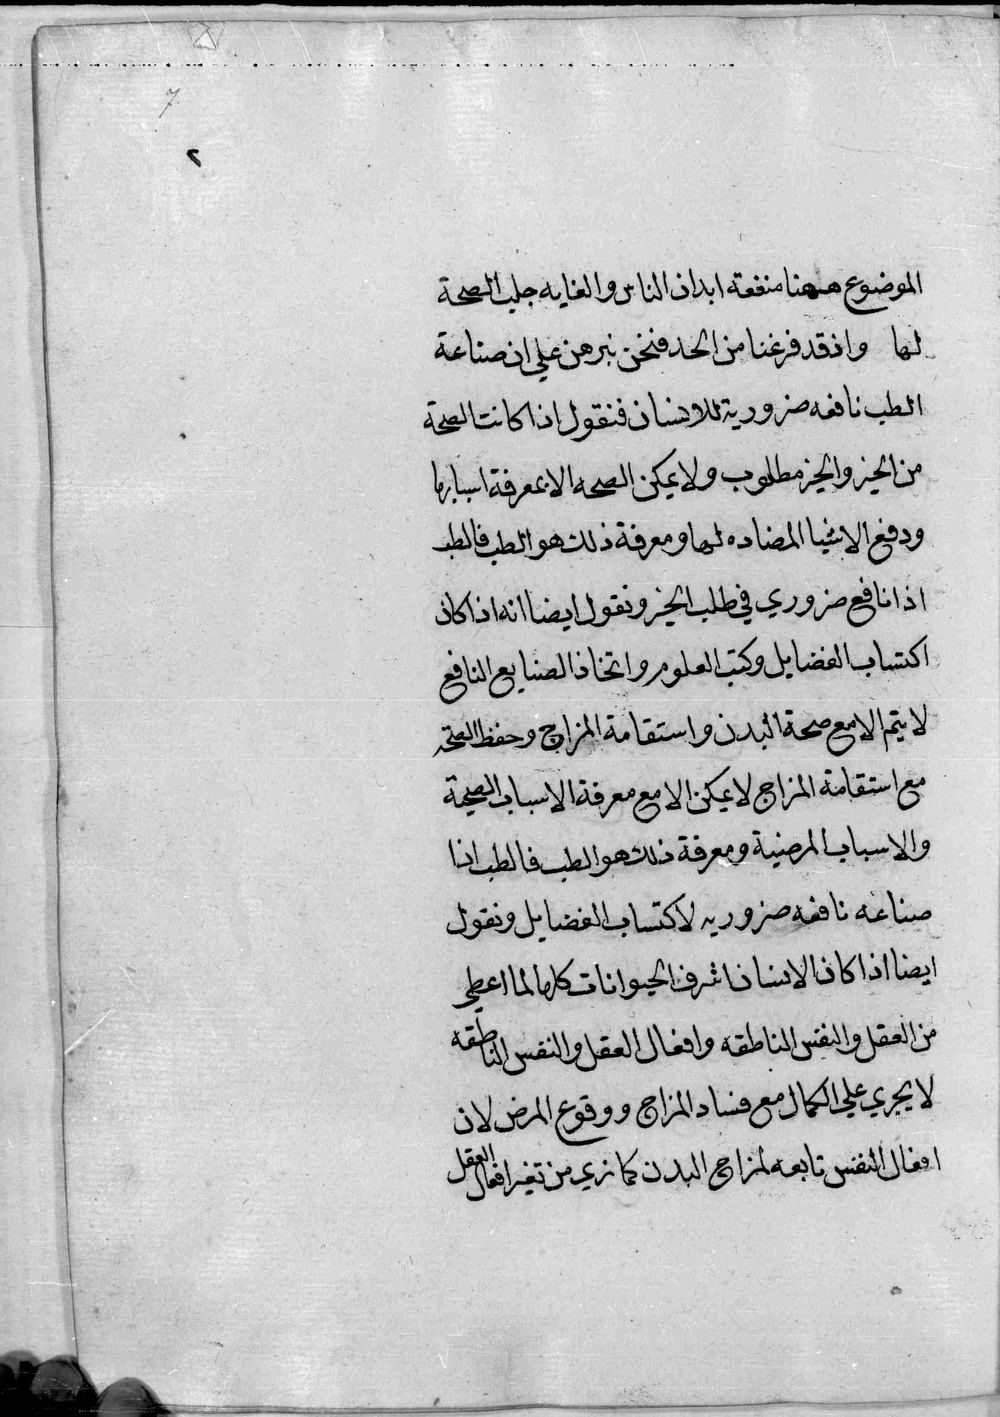 7
٢
الموضوع ههنا منفعته ابدان الناس والغايه جلب الصحة
لها واذ قد فرغنا من الحد فنحن نبرهن علي ان صناعة
الطب نافعه ضرورية للانسان فنقول اذا كانت الصحة
من الخير والخير مطلوب ولا يمكن الصحه الا بمعرفة اسبابها
ودفع الاشيا المضاده لها ومعرفة ذلك هو الطب فالطب
اذا نافع ضروري في طلب الخير ونقول ايضا انه اذا كان
اكتساب الفضايل وكتب العلوم واتخاذ الصنايع النافع
لا يتم الا مع صحة البدن واستقامة المزاج وحفظ الصحة
مع استقامة المزاج لا يمكن الا مع معرفة الاسباب الصحية
والاسباب المرضية ومعرفة ذلك هو الطب فالطب اذا
صناعه نافعه ضروريه لاكتساب الفضايل ونقول
ايضا اذا كان الانسان اشرف الحيوانات كلها لما اعطي
من العقل والنفس الناطقه وافعال العقل والنفس الناطقه
لا يجري علي الكمال مع فساد المزاج ووقوع المرض لان
افعال النفس تابعه لمزاج البدن كما نري من تغير افعال العقل